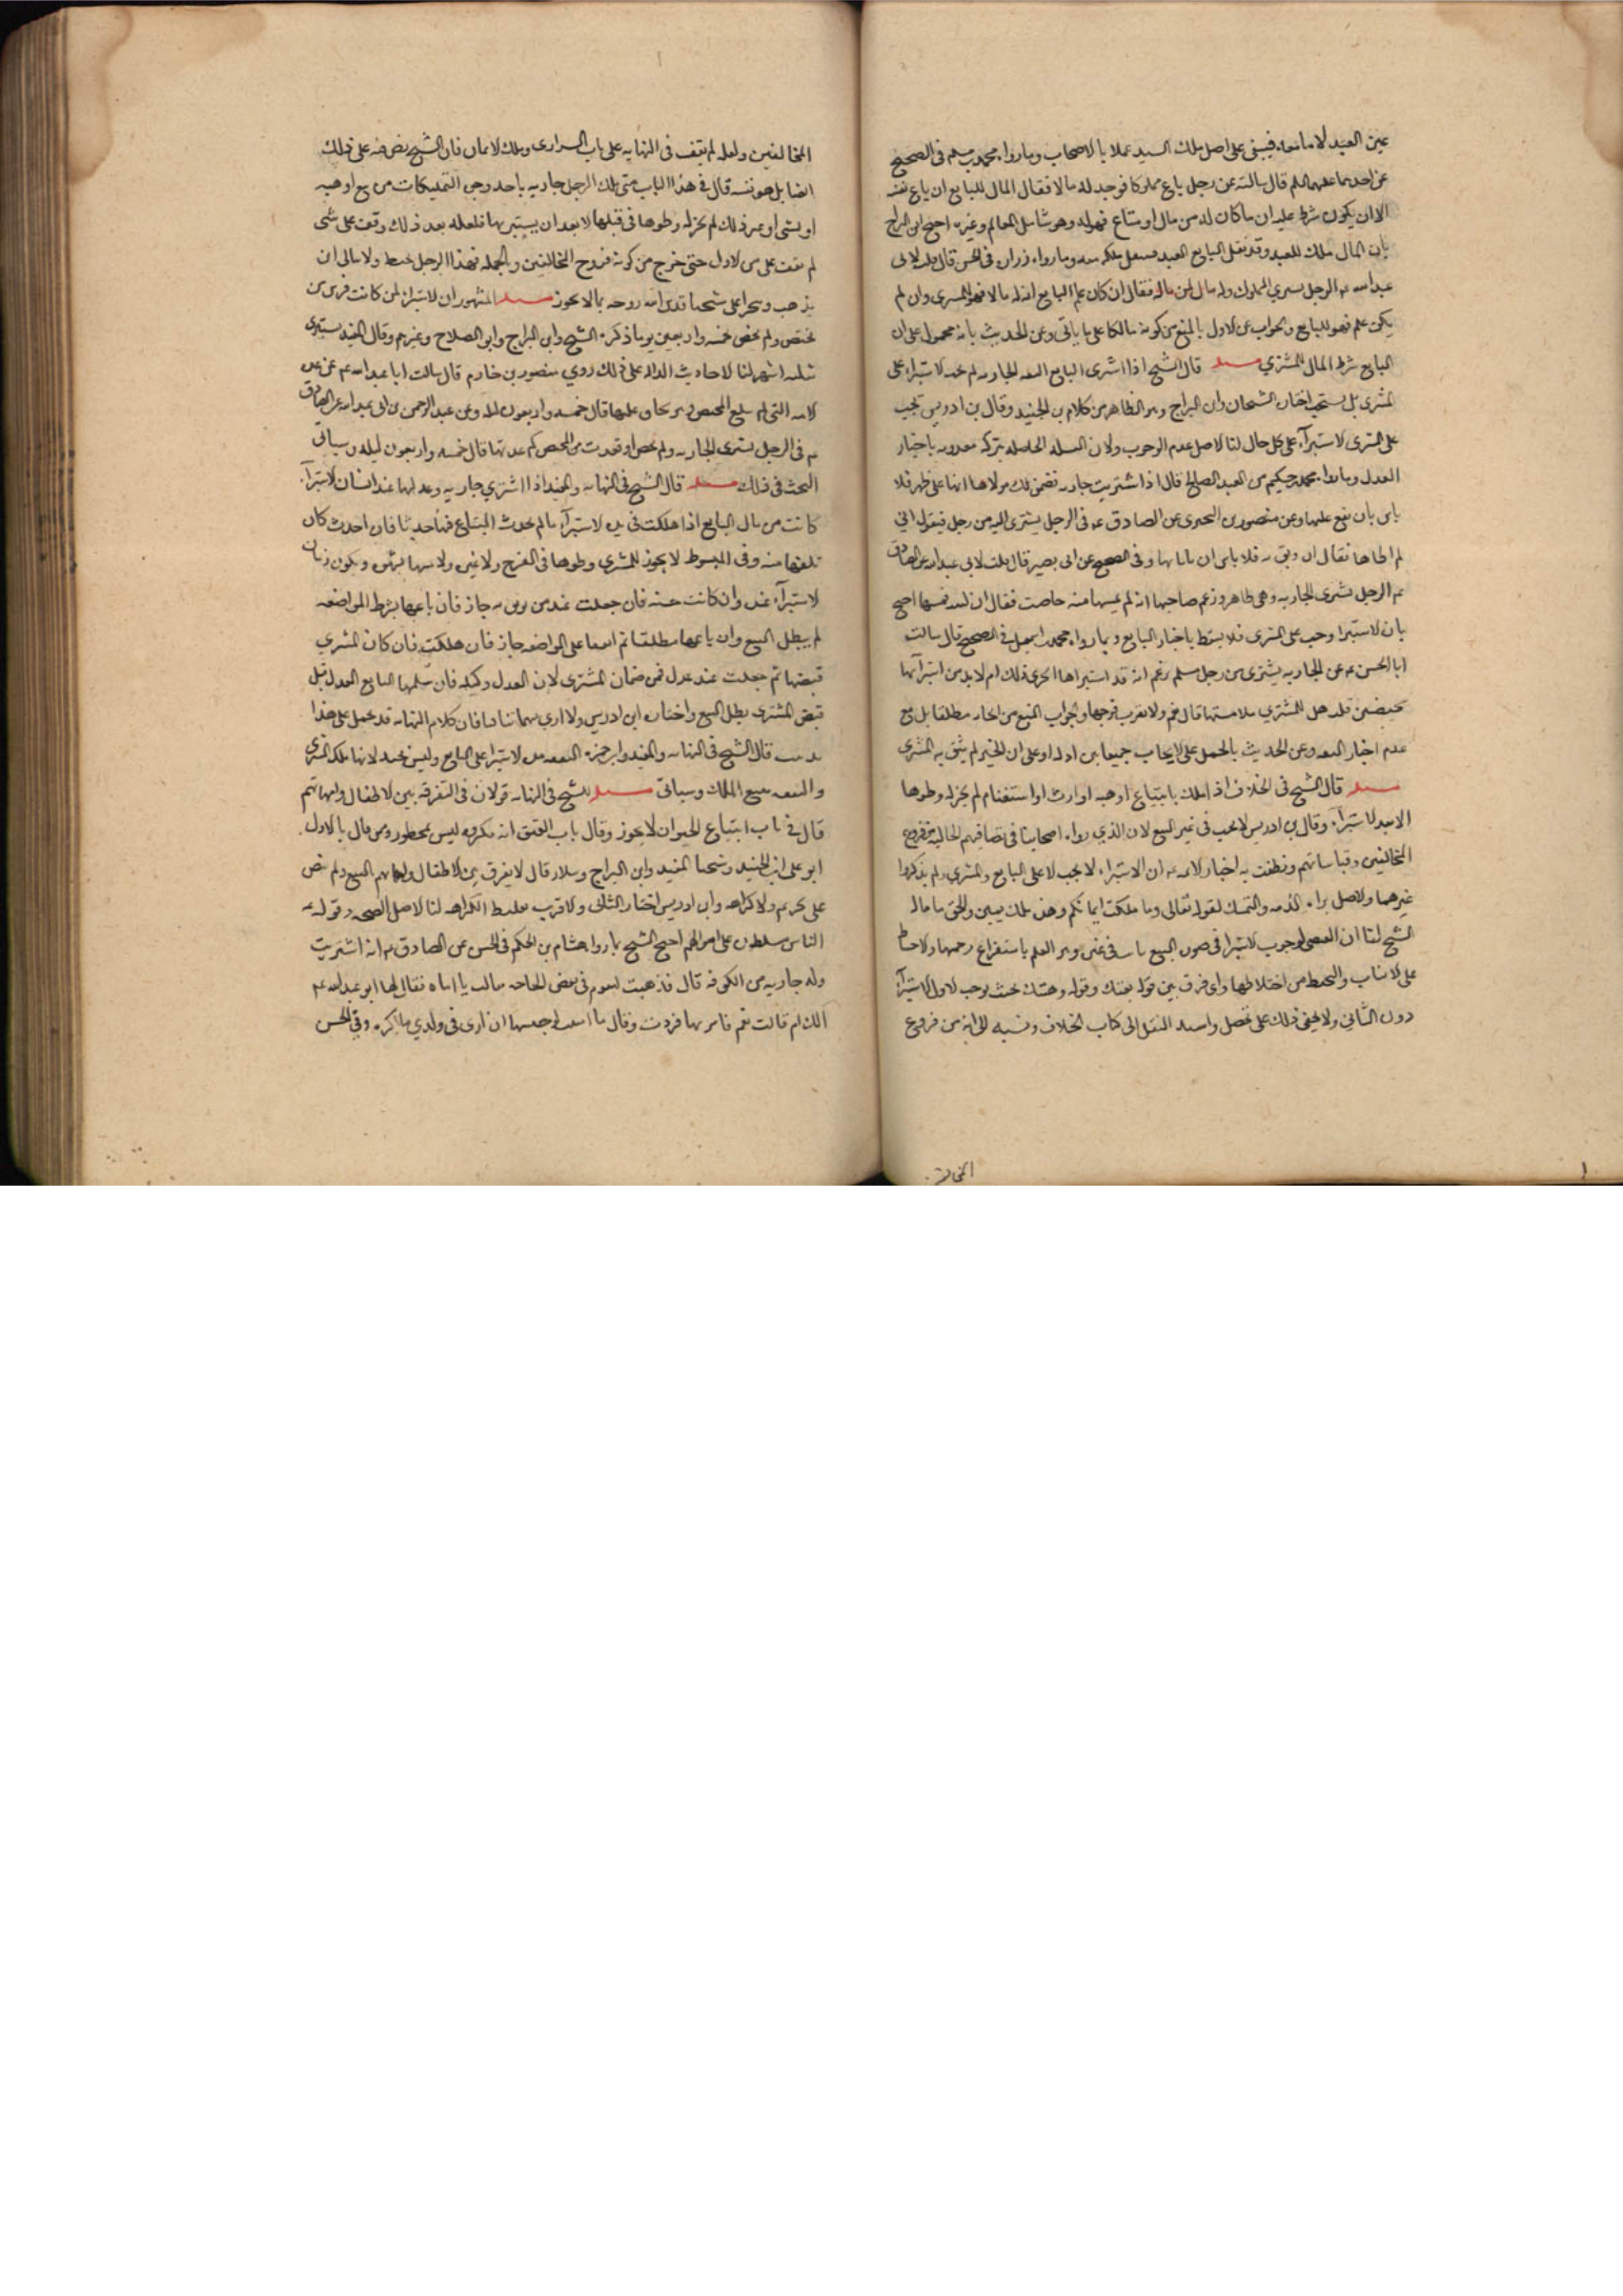 عين العبد لا مانعه فيبقى على اصل ملك السيد عملا بالاصحاب وما رواه محمد بن مسلم فى الصحيح
عن احدهما عليهما السلم قال سالته عن رجل باع مملوكا فوجد له مالا فقال المال للبايع انما باع نفسه
الا ان يكون شرط عليه ان ما كان له من مال او متاع فهو له وهو شامل للعالم وغيره احتج ابن البراج
بان المال ملك للعبد وقد نقل البايع العبد فينتقل ملكه معه وما رواه زراره فى الحسن قال قلت لابى
عبد الله عم الرجل يشتري المملوك وله مال لمن ماله فقال ان كان علم البايع ان له مالا فهو للمشترى وان لم
يكن علم فهو للبايع والجواب عن الاول بالمنع من كونه مالكا على ما ياتى وعن الحديث بانه محمول على ان
البايع شرط المال للمشتري مسئله قال الشيخ اذا اشترى البايع الثقه الجاريه لم يجب الاستبراء على
المشترى بل يستحب اختاره الشيخان وابن البراج وهو الظاهر من كلام بن الجنيد وقال بن ادريس تجب
على المشترى الاستبراء على كل حال لنا الاصل عدم الوجوب ولان الحاصله بتركه معدومه باخبار
العدل وما رواه محمد حكيم من العبد الصالح قال اذا اشتريت جاريه فضمن لك مولاها انها على طهر فلا
باس بان تقع عليها وعن منصور بن البحترى عن الصادق عم فى الرجل يشترى الامه من رجل فيقول انى
لم اطاها فقال ان وثق به فلا باس ان ياتيها وفى الصحيح عن ابى بصير قال قلت لابى عبد الله الصادق
عم الرجل يشترى الجاريه وهى طاهر وزعم صاحبها انه لم يمسها منذ حاضت فقال ان امنته فمسها احتج
بان الاستبراء وجب على المشترى فلا يسقط باخبار البايع وبما رواه محمد بن اسمعيل فى الصحيح قال سالت
ابا الحسن عم عن الجاريه يشترى من رجل مسلم زعم انه قد استبراها ايجزى ذلك ام لا بد من استبرائها
بحيضتين قلت هل للمشتري ملامستها قال نعم ولا يقرب فرجها والجواب المنع من اخباره مطلقا بل مع
عدم اخبار الثقه وعن الحديث بالحمل على الايجاب جمعا بين ادله او على ان المخبر لم يثق به المشترى
مسئله قال الشيخ فى الخلاف اذا ملك بابتياع او هبه او ارث او استغنام لم يجز له وطوها
الا بعد الاستبراء وقال بن ادريس لا يجب فى غير البيع لان الذي رواه اصحابنا فى تصانيفهم الخاليه من فروع
المخالفين وقياساتهم ونطقت به اخبار الائمه عم ان الاستبراء لا يجب الا على البايع والمشتري ولم يذكروا
غيرهما والاصل براءه الذمه والتمسك لقوله تعالى وما ملكت ايمانكم وهذه ملك يمين والحق ما قاله
الشيخ لنا ان المقتضى لوجوب الاستبراء فى صوره البيع ثابت فى غيره وهو العلم باستفراغ رحمها والاحتياط
على الانساب والتحفظ من اختلاطها واى فرق بين قوله بعتك وقوله وهبتك بحيث يوجب الاول الاستبراء
دون الثاني ولا يخفى ذلك على محصل واسند النقل الى كتاب الخلاف ونسبه الى انه من فروع
المخالفين
المخالفين ولعله لم يقف فى النهايه على باب السرارى وملك الايمان فان الشيخ نص فيه على ذلك
ايضا بل هو نفسه قال فى هذا الباب متى ملك الرجل جاريه باحد وجوه التمليكات من بيع او هبه
او سبى او غير ذلك لم يجز له وطوها فى قبلها الا بعد ان يستبريها فلعله بعد ذلك وقف على شى
لم يقف عليه فى الاول حتى خرج من كونه فروع المخالفين وبالجمله فهذا الرجل يخبط ولا يبالى ان
يذهب وتجرا على شيخنا قدس الله روحه بما لا يجوز مسئله المشهور ان الاستبراء لمن كانت فى سن من
تحيض ولم تحض خمسه واربعين يوما ذكره الشيخ وابن البراج وابو الصلاح وغيرهم وقال المفيد تستبرى
بثلثه اشهر لنا الاحاديث الداله على ذلك روي منصور بن حازم قال سالت ابا عبد الله عم عن عده
الامه التى لم تبلغ المحيض وهو يخاف عليها قال خمسه واربعون ليله وعن عبد الرحمن بن ابى عبد الله عن الصادق
عم فى الرجل يشترى الجاريه ولم تحض او قعدت من المحيض كم عدتها قال خمسه واربعون ليله وسياتى
البحث فى ذلك مسئله قال الشيخ فى النهايه والمفيد اذا اشترى جاريه وعدلها عند انسان للاستبراء
كانت من مال البايع اذا هلكت فى مده الاستبراء ما لم يحدث المبتاع فيها حدثا فان احدث كان
تلفها منه وفى المبسوط لا يجوز للمشترى وطوها فى الفرج ولا غيره ولا لمسها بشهوه ويكون زمان
الاستبراء عنده وان كانت حسنه فان جعلت عند من يوثق به جاز فان باعها بشرط المواضعه
لم يبطل البيع وان باعها مطلقا ثم اتفقا على المواضعه جاز فان هلكت فان كان المشترى
قبضها ثم جعلت عند عدل فمن ضمان المشترى لان العدل وكيله فان سلمها البايع العدل قبل
قبض المشترى بطل البيع واختاره ابن ادريس ولا ارى بينهما تنافيا فان كلام النهايه قد يحمل على هذا
تذنيب قال الشيخ فى النهايه والمفيد وابن حمزه النفقه مده الاستبراء على البايع وليس بجيد لانها ملك المشترى
والنفقه تتبع الملك وسياتى مسئله للشيخ فى النهايه قولان فى التفرقه بين الاطفال وامهاتهم
قال فى باب ابتياع الحيوان لا يجوز وقال باب العتق انه مكروه ليس بمحظور ومن قال بالاول
ابو على ابن الجنيد وشيخنا المفيد وابن البراج وسلار قال لا يفرق بين الاطفال وامهاتهم البيع ولم ينص
على تحريم ولا كراهه وابن ادريس اختار الثانى والاقرب تغليظ الكراهه لنا الاصل الصحه وقوله عم
الناس مسلطون على اموالهم احتج الشيخ بما رواه هشام بن الحكم فى الحسن عن الصادق عم انه اشتريت
وله جاريه من الكوفه قال فذهبت لتقوم فى بعض الحاجه قالت يا اماه فقال لها ابو عبد الله عم
الك ام قالت نعم فامر بها فردت وقال ما امنت لو حبستها ان ارى فى ولدي ما اكره وفى الحسن